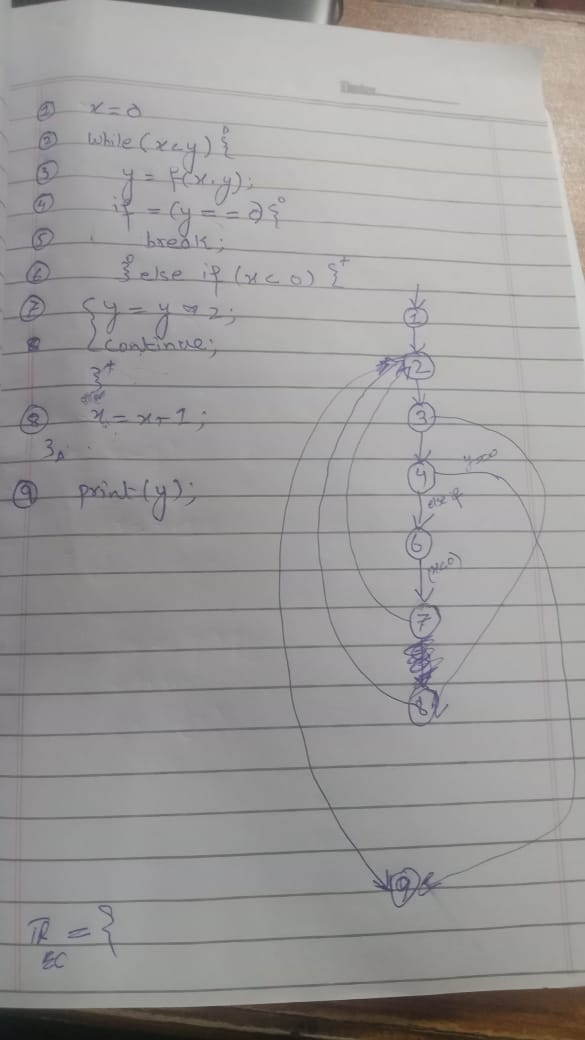 ① x=0
② while(x<y) {°
③ y = f(x,y);
④ if = (y == 0) {°
⑤ break;
⑥ }° else if (x<0) {⁺
⑦ { y = y * 2;
{ continue;
}⁺
⑧ x = x+1;
}
⑨ print(y);
1
2
3
4 y==0
else if
6
(x<0)
7
8
9
TR EC = {